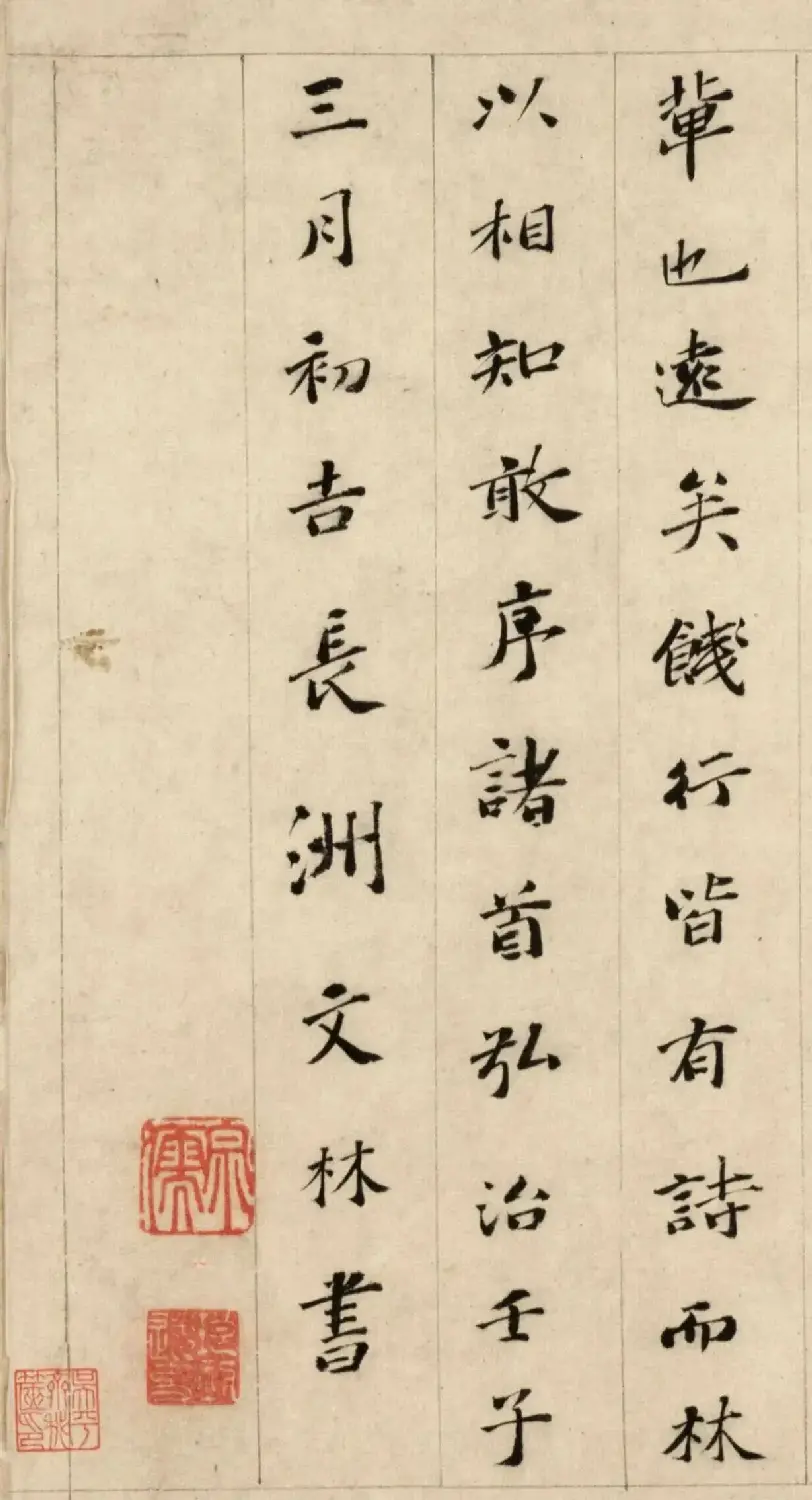 輩也遠矣餞行皆有詩而林
以相知敢序諸首弘治壬子
三月初吉長洲文林書
宗儒